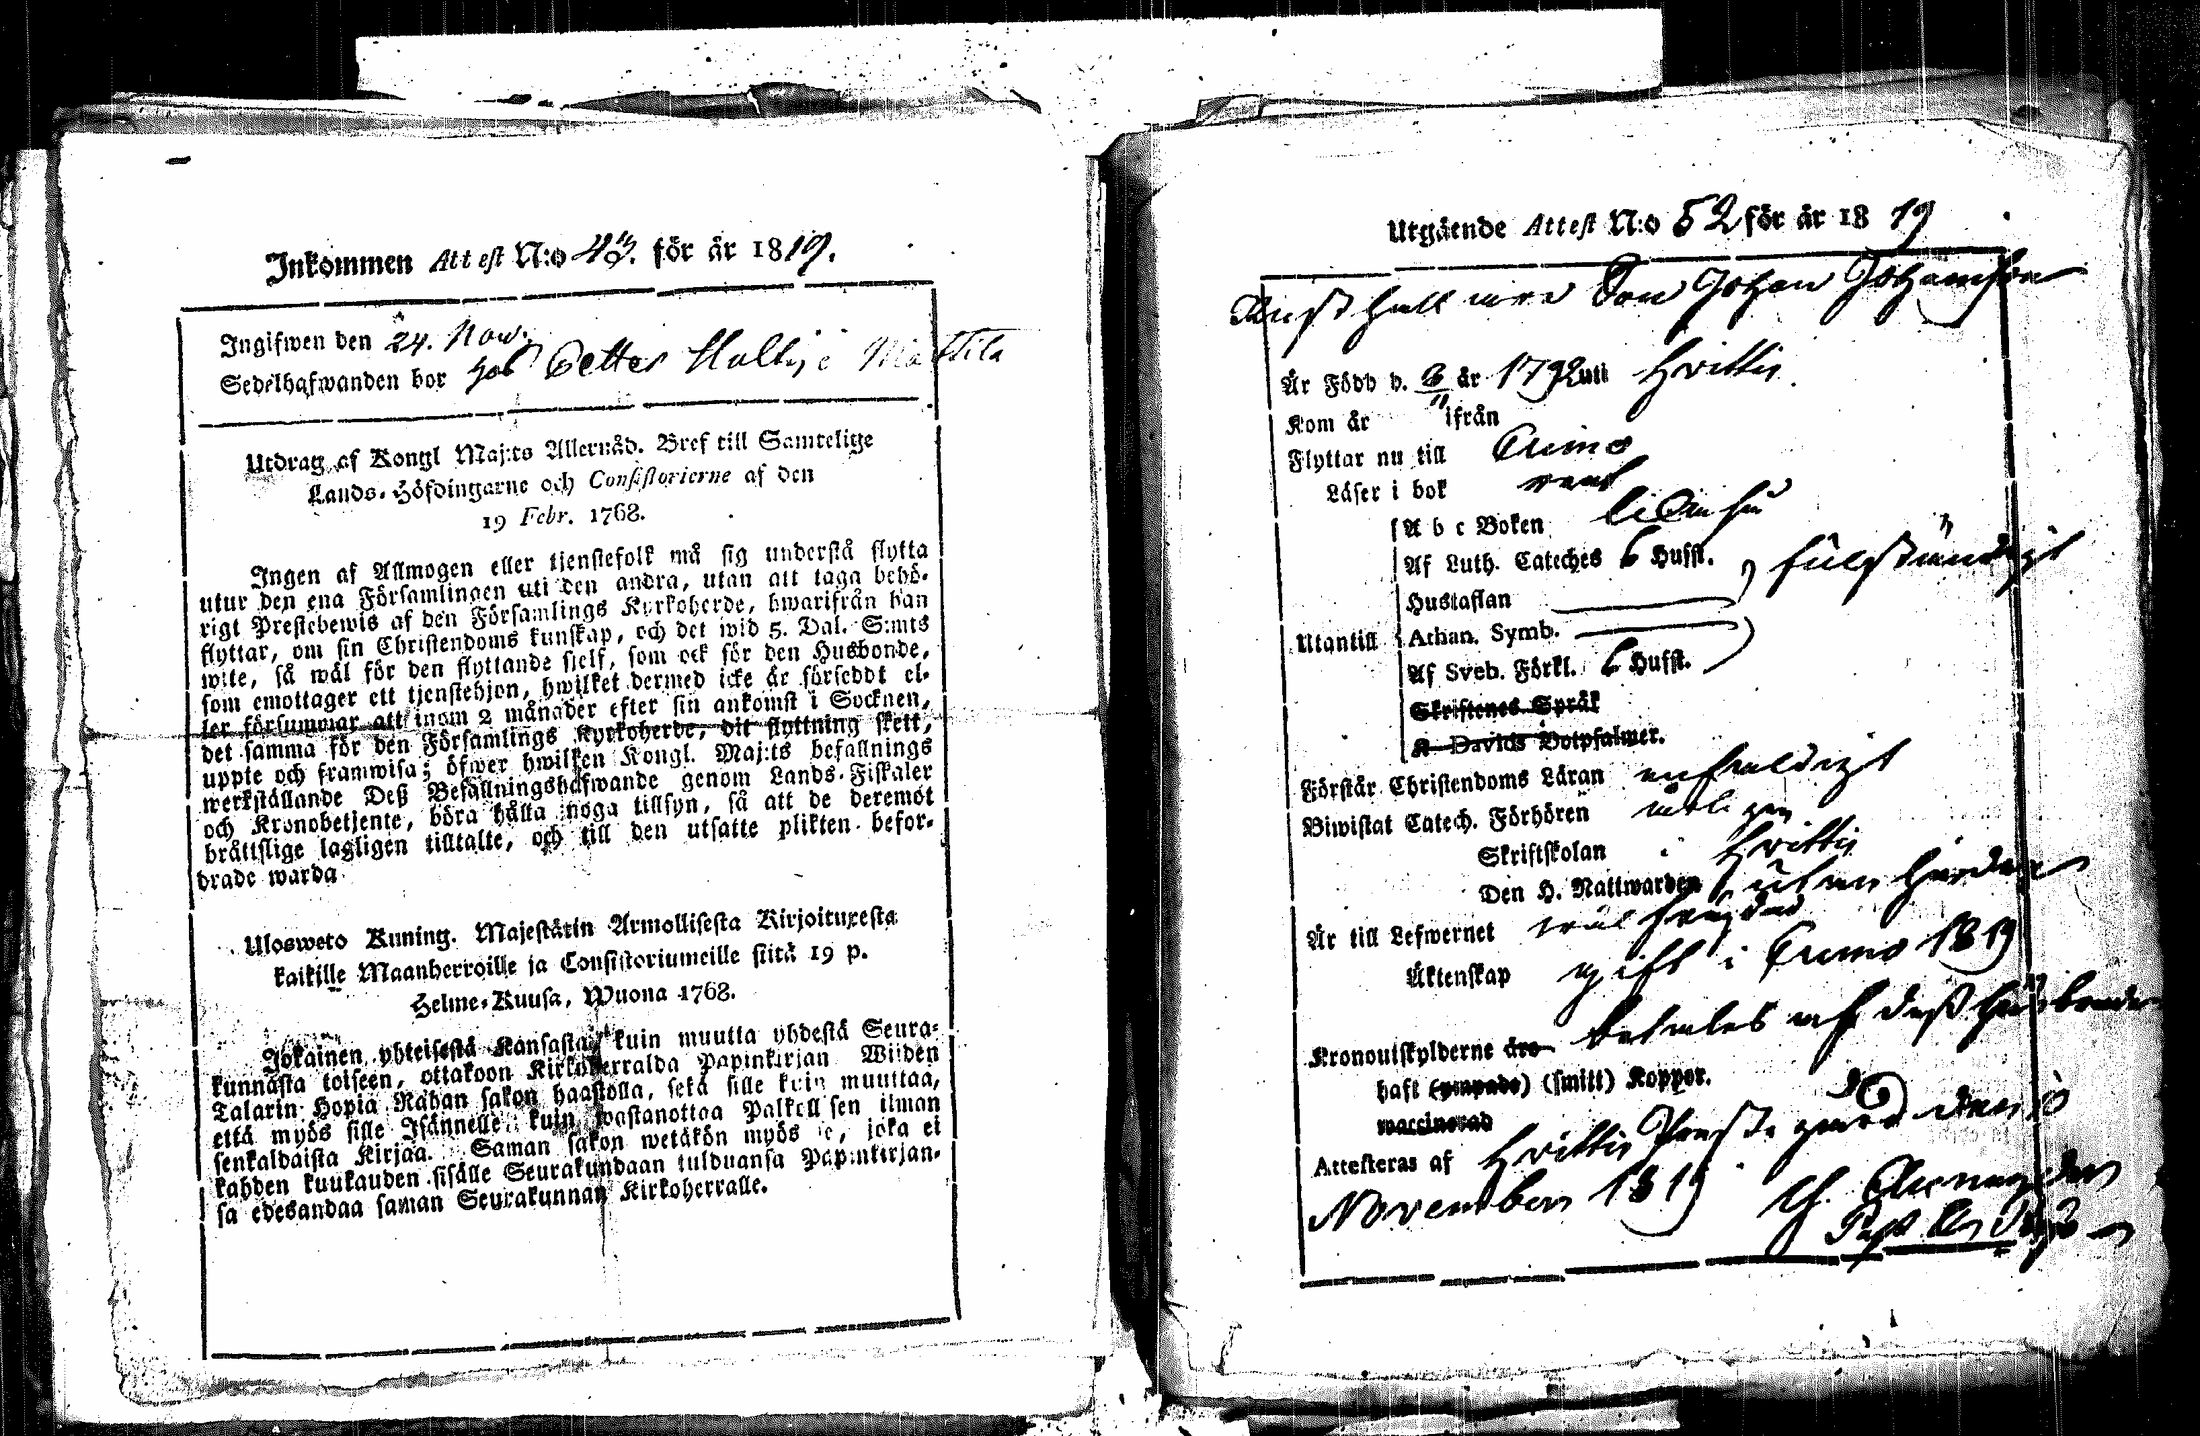 Inkommen Attest N:o 43. för år 1819.
Ingifwen den 24. Nov.
Sedelhafwanden bor hos Petter Multi i Mattila
Utdrag af Kongl Maj:ts Allernåd. Bref till Samtelige
Lands-Höfdingarne och Consistorierne af den
19 Febr. 1768.
Ingen af Allmogen eller tjenstefolk må sig understå flytta
utur den ena Församlingen uti den andra, utan att taga behö-
rigt Prestebewis af den Församlings Kyrkoherde, hwarifrån han
flyttar, om sin Christendoms kunskap, och det wid 5. Dal. S:mts
wite, så wäl för den flyttande sjelf, som ock för den Husbonde,
som emottager ett tjenstehjon, hwilket dermed icke är försedt el-
ler försummar att inom 2 månader efter sin ankomst i Socknen,
det samma för den Församlings Kyrkoherde, dit flyttning skett,
uppte och framwisa; öfwer hwilken Kongl. Maj:ts befallnings
werkställande Deß Befallningshafwande genom Lands-Fiskaler
och Kronobetjente, böra hålla noga tillsyn, så att de deremot
bråttslige lagligen tilltalte, och till den utsatte plikten befor-
drade warda
Ulosweto Kuning. Majestätin Armollisesta Kirjoituxesta
kaikille Maanherroille ja Consistoriumeille siitä 19 p.
Helme-Kuusa, Wuona 1768.
Jokainen yhteisestä Kansasta, kuin muutta yhdestä Seura-
kunnasta toiseen, ottakoon Kirkoherralda Papinkirjan Wiiden
Talarin Hopia Rahan sakon haastolla, sekä sille kuin muuttaa,
että myös sille Isännelle, kuin wastanottaa Palkollisen ilman
senkaldaista Kirjaa. Saman sakon wetäkön myös se, joka ei
kahden kuukauden sisälle Seurakundaan tulduansa Papinkirjan-
sa edesandaa saman Seurakunnan Kirkoherralle.
Utgående Attest N:o 52 för år 1819
Johan Johansson
Är Född d. 3/11 år 1792 uti Hvittis
Kom år ifrån
Flyttar nu till Eumo
Läser i bok
A b c Boken
Af Luth. Cateches 6 Hufst. fulständigt
Hustaflan
Utantill Athan. Symb.
Af Sveb. Förkl. 6 Hufst.
Skriftenes Språk
K Davids Botpsalmer.
Förstår Christendoms Läran enfaldigt
Biwistat Catech. Förhören
Skriftskolan i Hvittis
Den H. Nattwarden
Är till Lefwernet wäl
Äktenskap gift i 1819
Kronoutskylderne äro betales af deß husbonde
haft (ympade) (smitt) Koppor.
waccinerad
Attesteras af Hvittis Prestegård den 10
November 1819